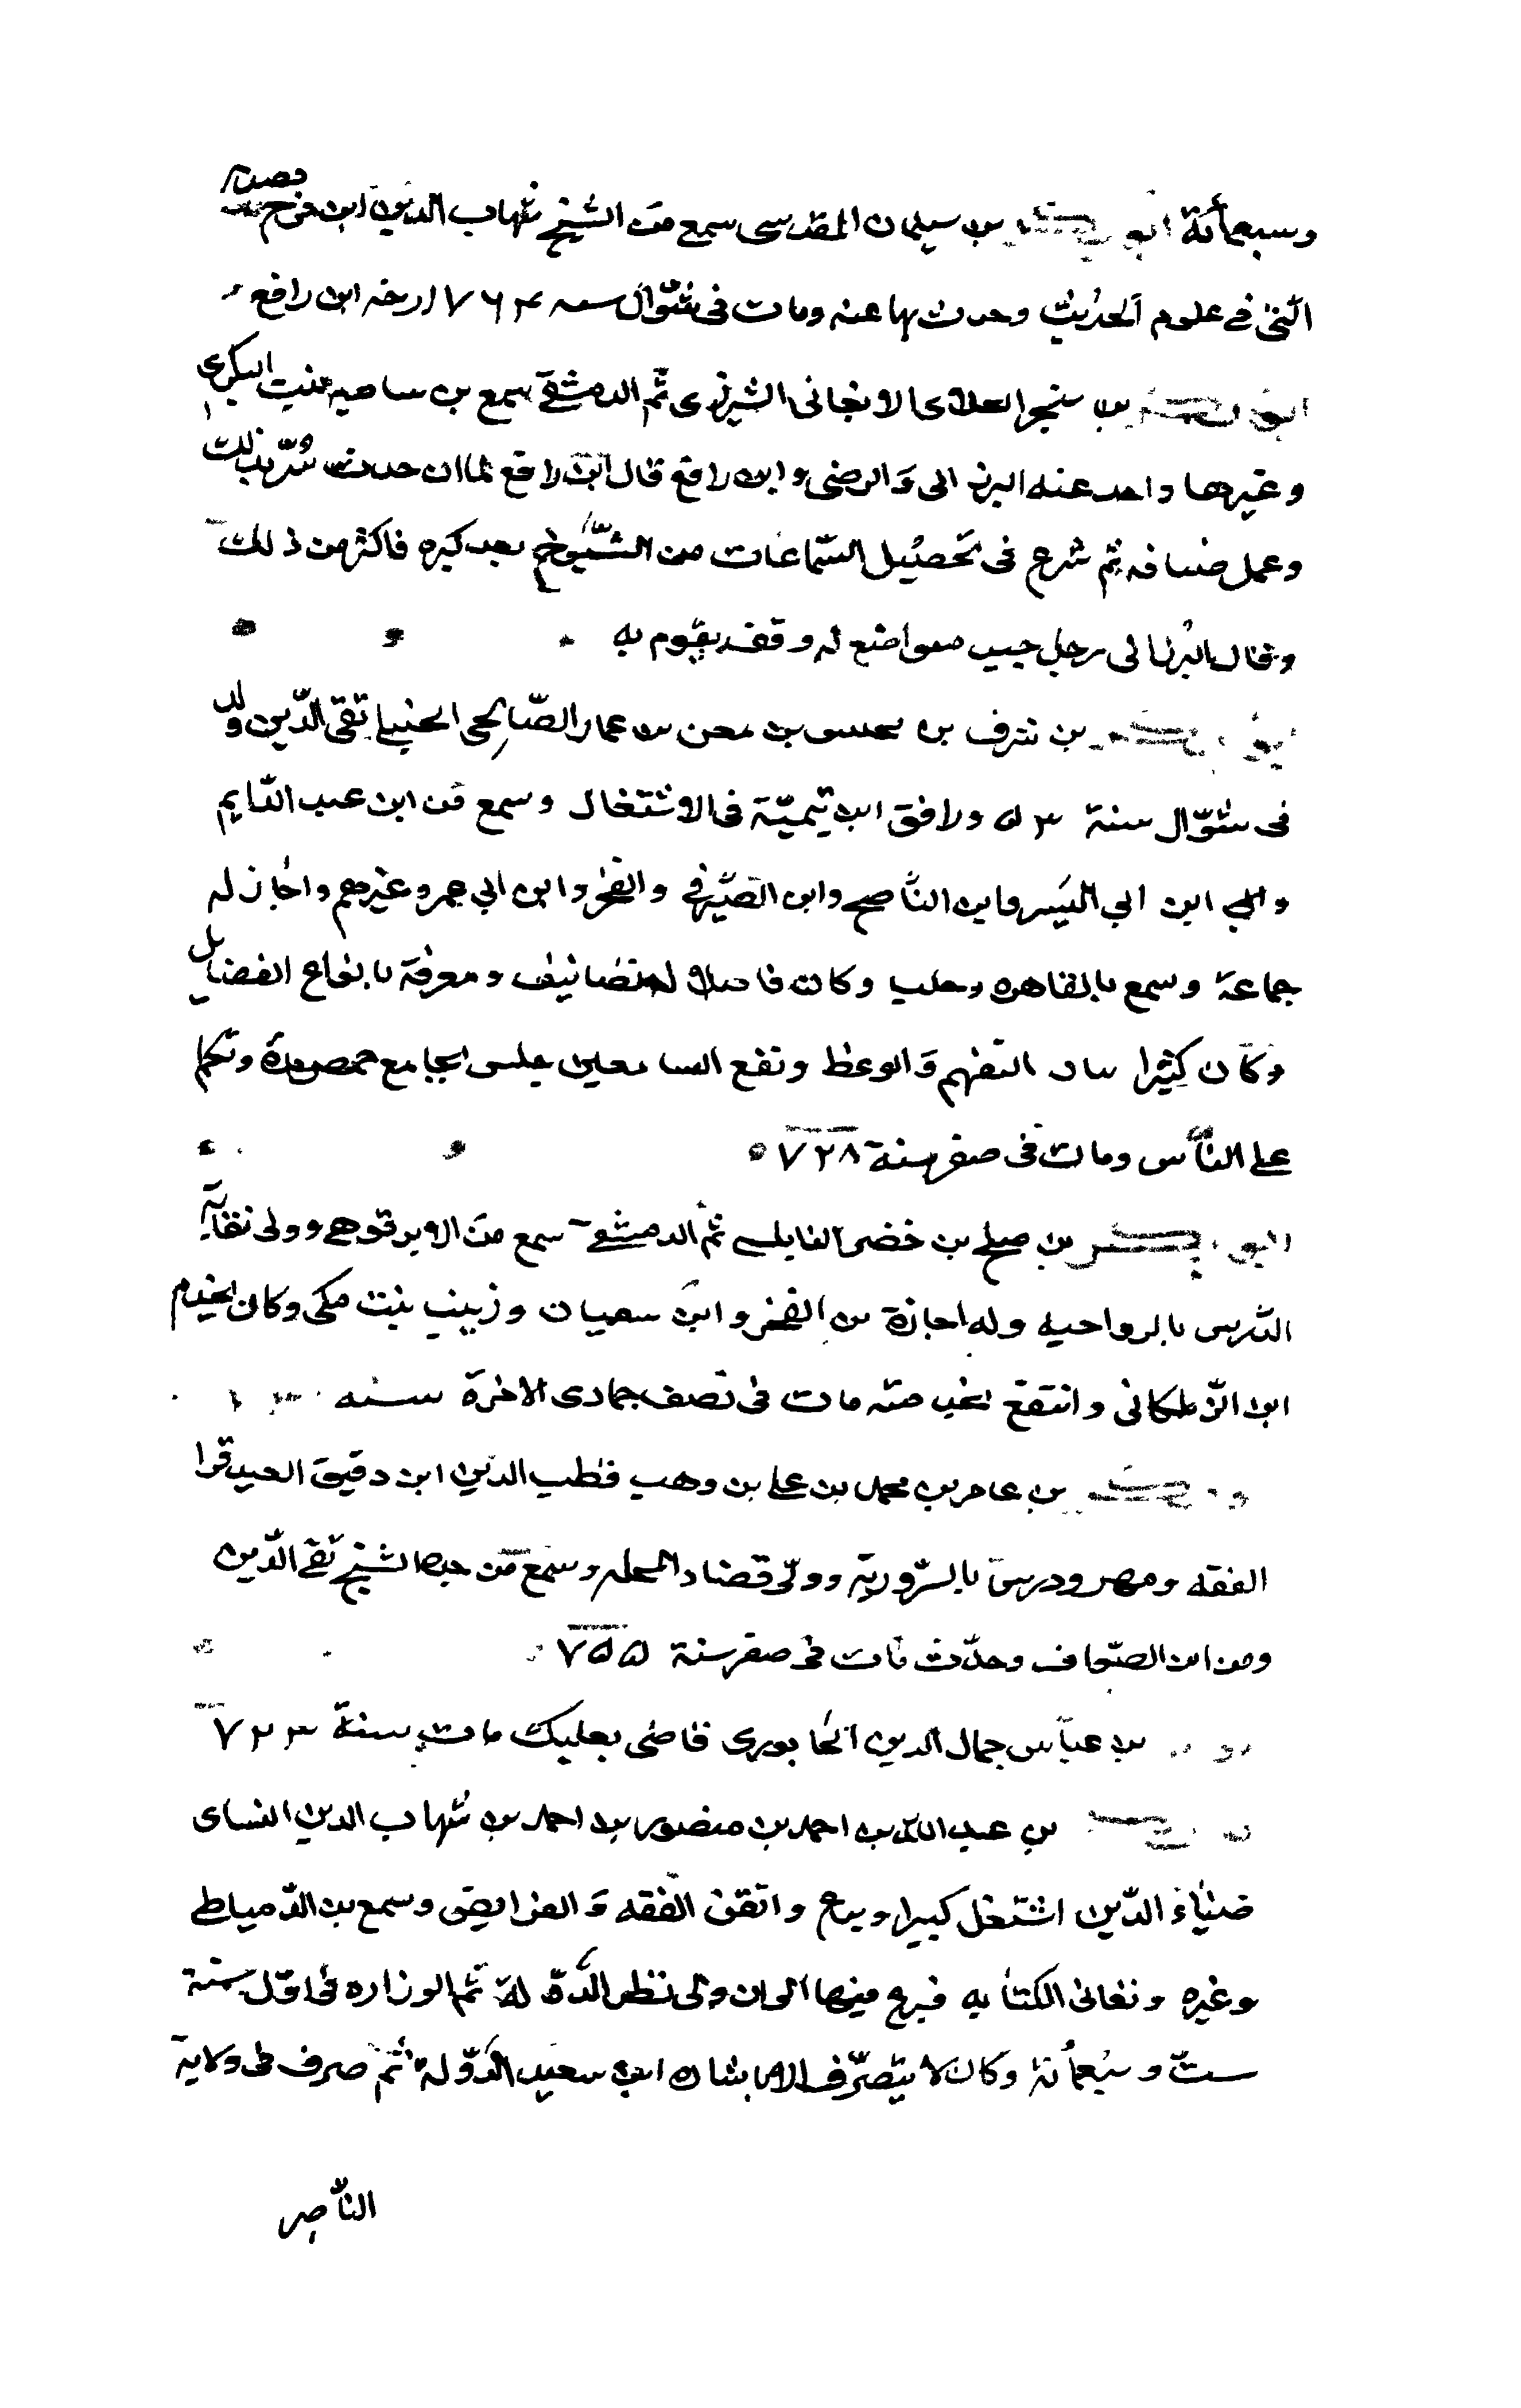 وسبعمائة ابو بكر بن سليمان المقدسى سمع من الشيخ شهاب الدين ابن فرح قصيدته
التى فى علوم الحديث وحدث بها عنه ومات فى شوال سنه ٧٦٣ ارخه ابن رافع
ابو بكر بن سنجر العلاى الارنجانى الشيرازى ثم الدمشقى سمع بن ساميه بنت البكرى
وغيرها واخد عنه البرزالى والرضى وابن رافع قال ابن رافع لما ان حدث سر بذلك
وعمل ضيافه ثم شرع فى تحصيل السماعات من الشيوخ بعد كبره فاكثر من ذلك
وقال البرزالى رجل جيد متواضع له وقف يقوم به
ابو بكر بن شرف بن محسن بن معن بن عمار الصالحى الحنبلى تقى الدين ولد
فى شوال سنة ٥٣ ورافق ابن تيمية فى الاشتغال وسمع من ابن عبد الدايم
وابن ابي اليسر وابن الناصح وابن الصيرفي والفخر وابن ابي عمر وغيرهم واجاز له
جماعة وسمع بالقاهره وحلب وكان فاضلا له تصانيف ومعرفة بانواع الفضايل
وكان كثيرا التفهم والوعظ ونفع السامعين جلس بجامع حمص مدة وتكلم
على الناس ومات فى صفر سنة ٧٢٨
ابو بكر بن صبلح بن خضر النابلسى ثم الدمشقى سمع من الابرقوهى وولى نقابة
الدرس بالرواحيه وله اجازة من الفخر وابن سعبان وزينب بنت مكى وكان يخدم
ابن الزملكانى وانتفع مات فى نصف جمادى الاخرة سنه
ابو بكر بن عامر بن محمد بن على بن وهب قطب الدين ابن دقيق العيد قرا
الفقه ومهر ودرس بالسرورية وولى قضاء المحله وسمع من جده الشيخ تقى الدين
ومن ابن الصواف وحدث مات فى صفر سنة ٧٥٥
ابو بكر بن عباس جمال الدين الخابورى قاضى بعلبك مات سنة ٧٢٣
ابو بكر بن عبد الله بن احمد بن منصور بن احمد بن شهاب الدين النساى
ضياء الدين اشتغل كبيرا وبرع واتقن الفقه والفرايض وسمع من الدمياطى
وغيره وتعانى الكتابه فبرع فيها الى ان ولى نظر الدولة ثم الوزاره فى اول سنة
ست وسبعمائة وكان لا يتصرف الا باشاره ابن سعيد الدولة ثم صرف فى ولاية
الناصر